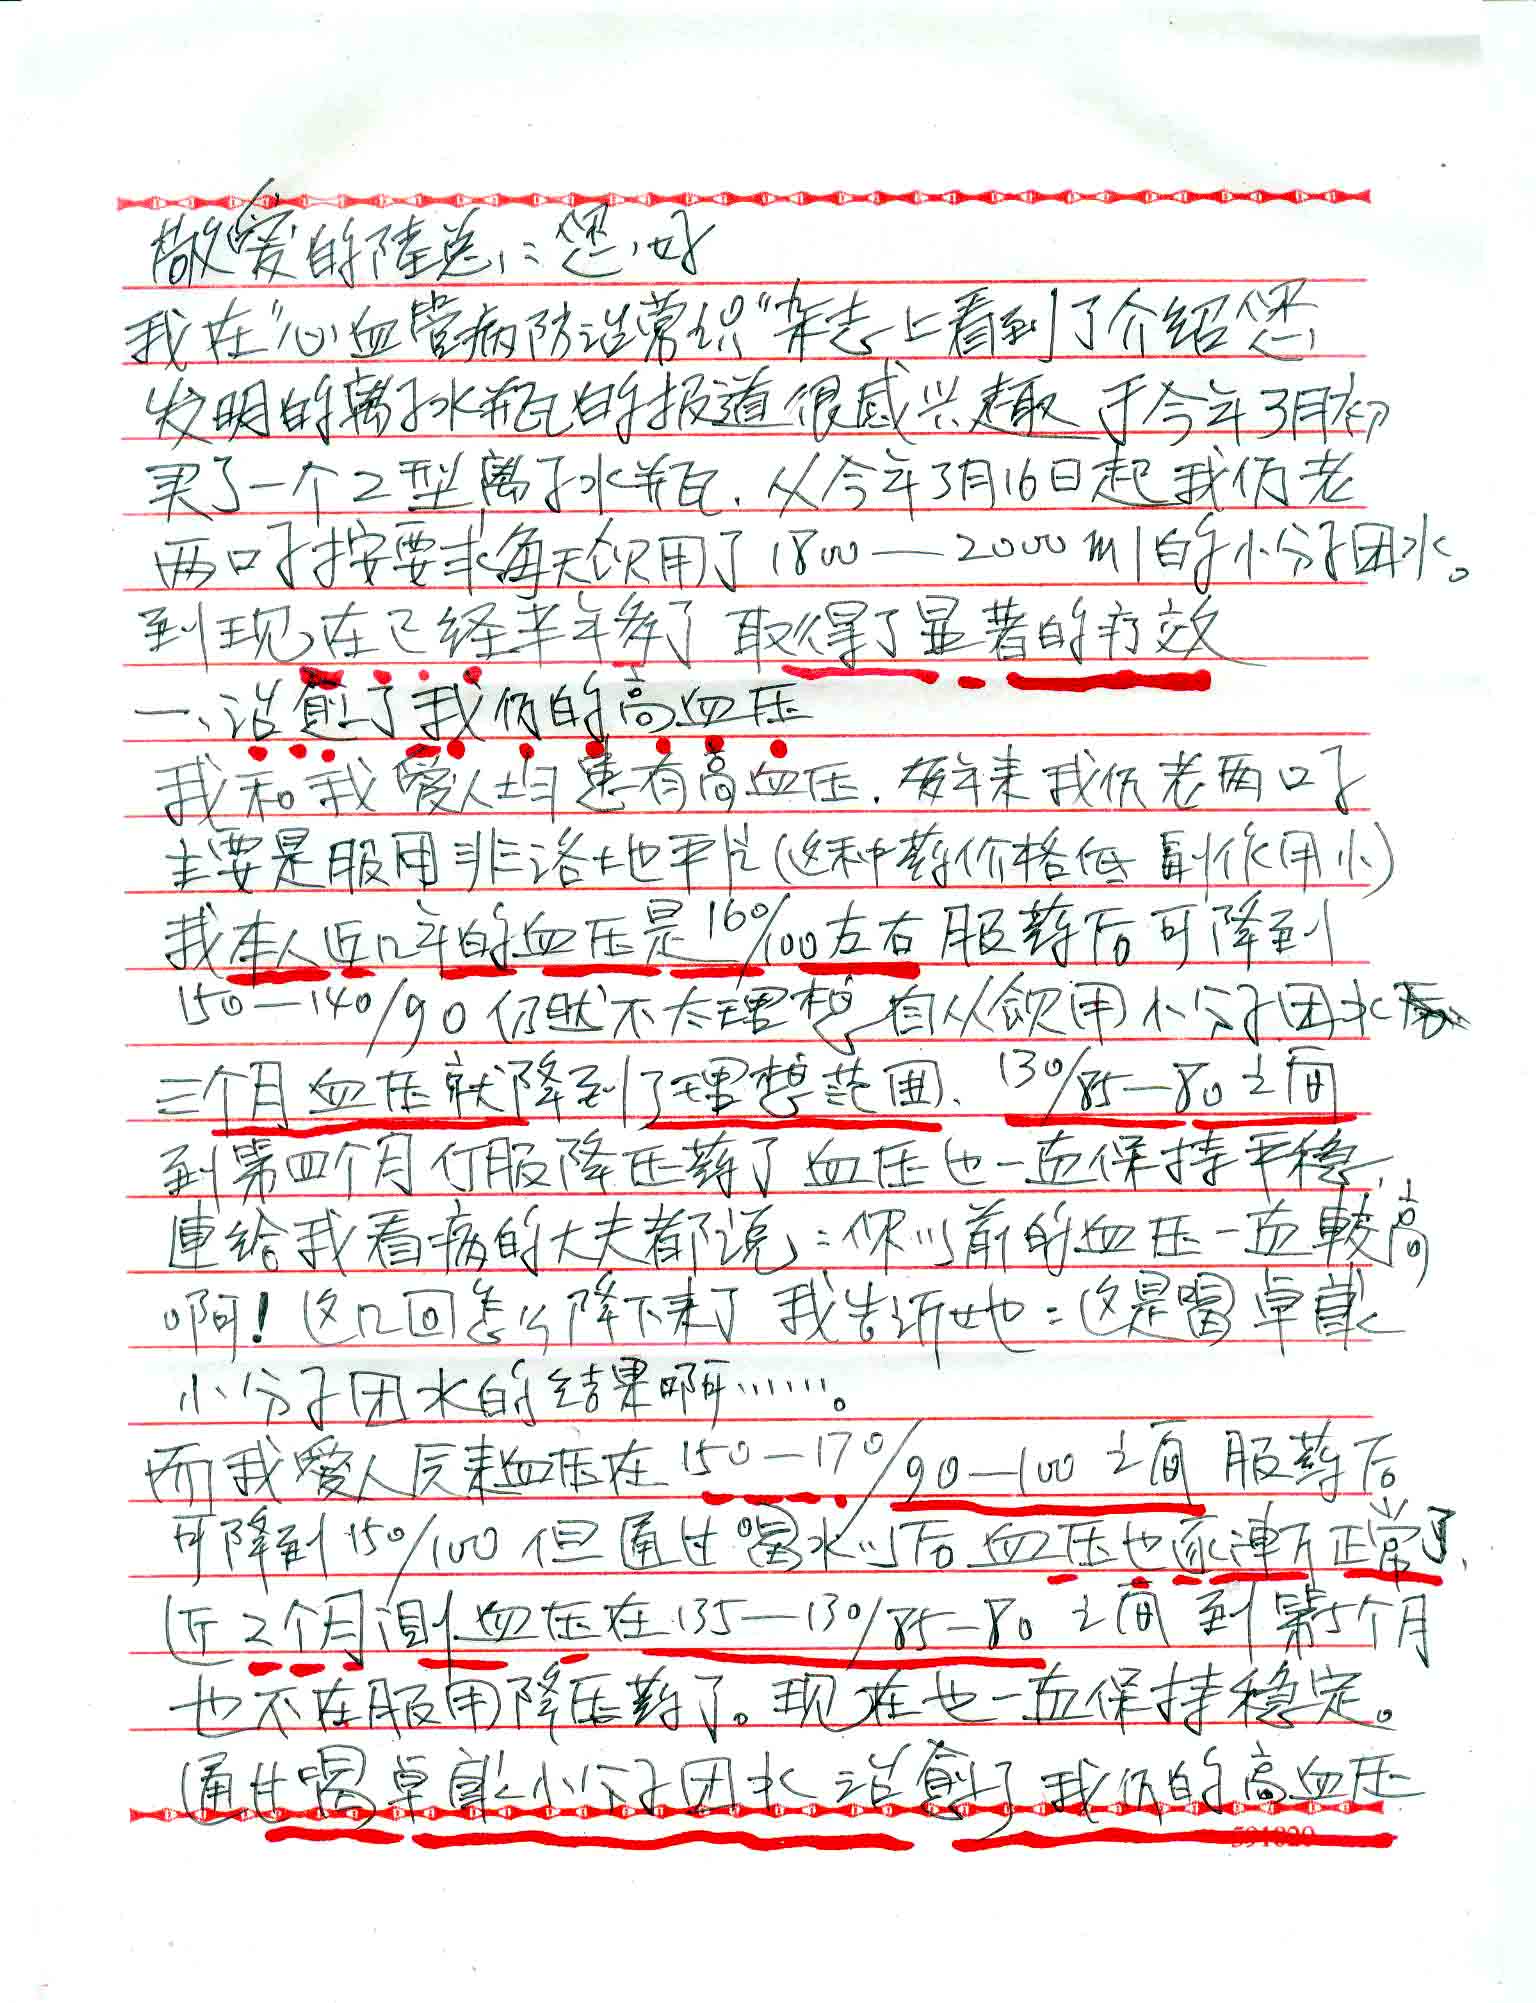 敬爱的陆总：您好
我在“心血管病防治常识”杂志上看到了介绍您
发明的離子水瓶的报道很感兴趣 于今年3月初
买了一个2型離子水瓶．从今年3月16日起我们老
两口子按要求每天饮用了1800—2000ml的小分子团水。
到现在已经半年多了 取得了显著的疗效
一、治愈了我们的高血压
我和我愛人均患有高血压．多年来我们老两口子
主要是服用非洛地平片(这种药价格低 副作用小)
我本人近几年的血压是160/100左右 服药后可降到
150—140/90仍然不太理想 自从飲用小分子团水后
三个月血压就降到了理想范围．130/85—80之间
到第四个月仃服降压药了 血压也一直保持平稳，
連给我看病的大夫都说：你以前的血压一直較高
啊！这几回怎么降下来了 我告诉她：这是喝卓
小分子团水的结果啊……。
而我愛人原来血压在150—170/90—100之间 服药后
可降到150/100但通过喝水以后血压也逐渐正常了．
近2个月测血压在135—130/85—80之间 到第5个月
也不在服用降压药了。现在也一直保持稳定。
通过喝卓小分子团水 治愈了我们的高血压
591820